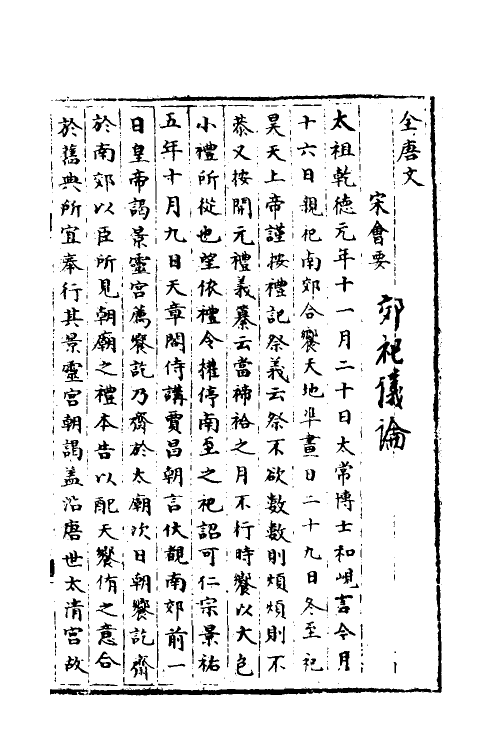 全唐文
宋會要
郊祀儀論
太祖乾德元年十一月二十日太常博士和峴言今月
十六日親祀南郊合饗天地準畫日二十九日冬至祀
昊天上帝謹按禮記祭義云祭不欲數數則煩煩則不
恭又按開元禮義纂云當禘祫之月不行時饗以大包
小禮所從也望依禮令權停南至之祀詔可仁宗景祐
五年十月九日天章閣侍講賈昌朝言伏覩南郊前一
日皇帝謁景靈宮薦饗訖乃齋於太廟次日朝饗訖齊
於南郊以臣所見朝廟之禮本告以配天饗侑之意合
於舊典所宜奉行其景靈宮朝謁盖沿唐世太清宮故